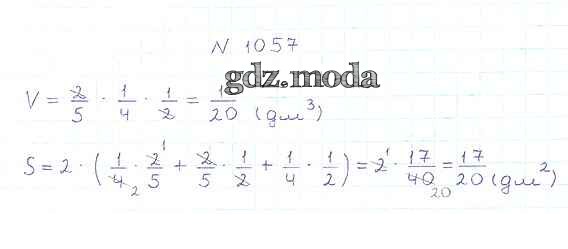 N 1057
gdz.moda
V = 2/5 · 1/4 · 1/2 = 1/20 (дм³)
S = 2 · (1/4 · 2/5 + 2/5 · 1/2 + 1/4 · 1/2) = 2 · 17/40 = 17/20 (дм²)